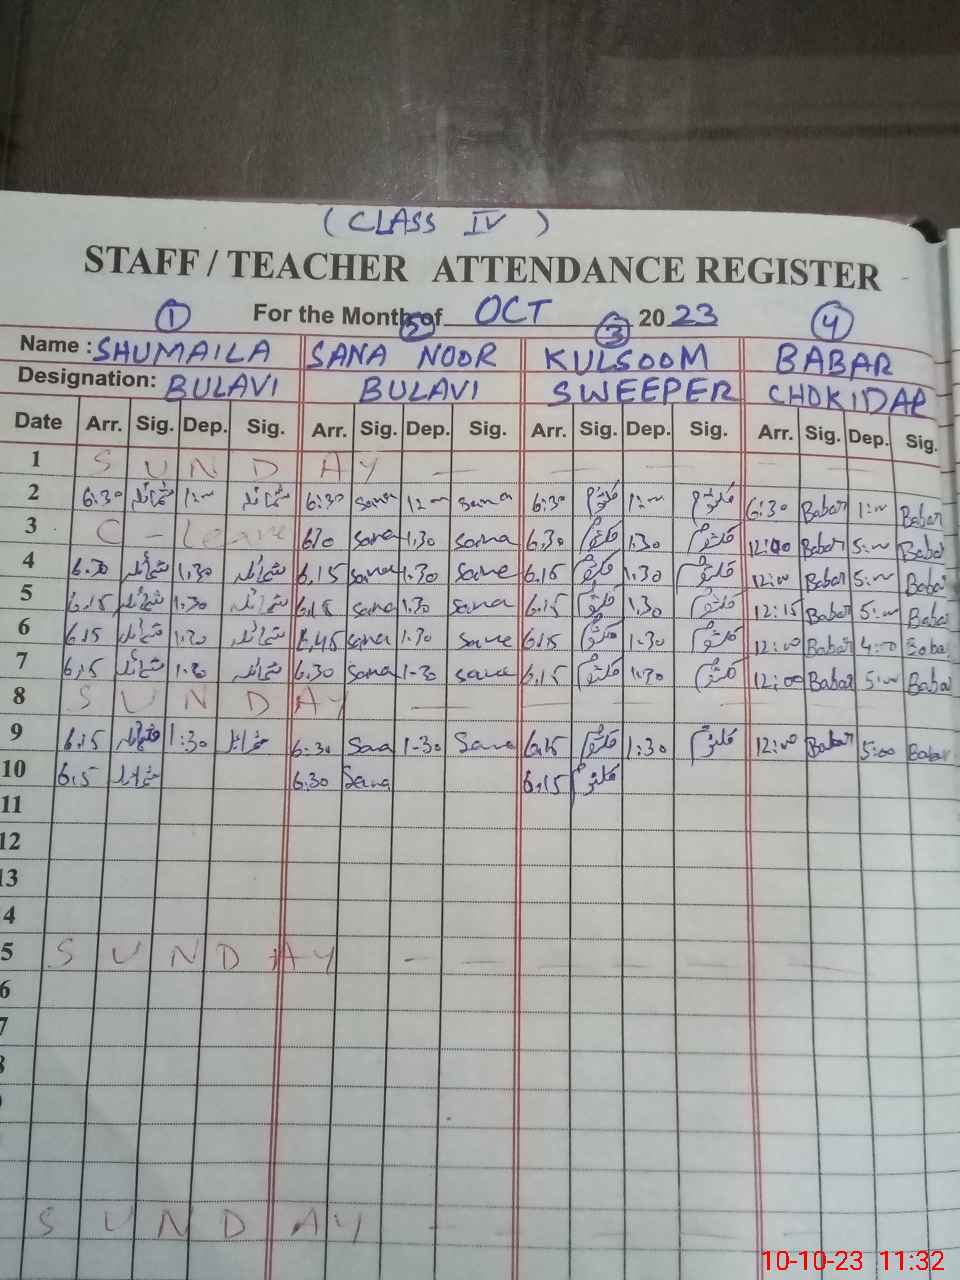 ( CLASS IV )
STAFF / TEACHER ATTENDANCE REGISTER
For the Month of OCT 2023
1 2 3 4
Name : SHUMAILA SANA NOOR KULSOOM BABAR
Designation: BULAVI BULAVI SWEEPER CHOKIDAR
Date Arr. Sig. Dep. Sig. Arr. Sig. Dep. Sig. Arr. Sig. Dep. Sig. Arr. Sig. Dep. Sig.
1 S U N D A Y — — — — — —
2 6:30 شمائلہ 1:00 شمائلہ 6:30 Sana 12:00 Sana 6:30 کلثوم 1:00 کلثوم 6:30 Babar 1:00 Babar
3 C - Leave Sana 1.30 Sana 6.30 کلثوم 1.30 کلثوم 12:00 Babar 5:00 Babar
4 6.30 شمائلہ 1.30 شمائلہ 6.15 Sana 1.30 Sana 6.15 کلثوم 1.30 کلثوم 12:00 Babar 5:00 Babar
5 6.15 شمائلہ 1.30 شمائلہ Sana 1.30 Sana 6.15 کلثوم 1.30 کلثوم 12:15 Babar 5:00 Babar
6 6.15 شمائلہ 1.30 شمائلہ Sana 1.30 Sana 6.15 کلثوم 1.30 کلثوم 12:00 Babar 4:00 Babar
7 6.15 شمائلہ 1.30 شمائلہ 6.30 Sana 1-30 Sana 6.15 کلثوم 1.30 کلثوم 12:00 Babar 5:00 Babar
8 S U N D A Y — — — — — —
9 6.15 شمائلہ 1:30 شمائلہ 6:30 Sana 1-30 Sana 6.15 کلثوم 1:30 کلثوم 12:00 Babar 5:00 Babar
10 6.15 شمائلہ 6.30 Sana 6.15 کلثوم
11
12
13
4
5 S U N D A Y - — — — — —
6
7
S U N D A Y - —
10-10-23 11:32